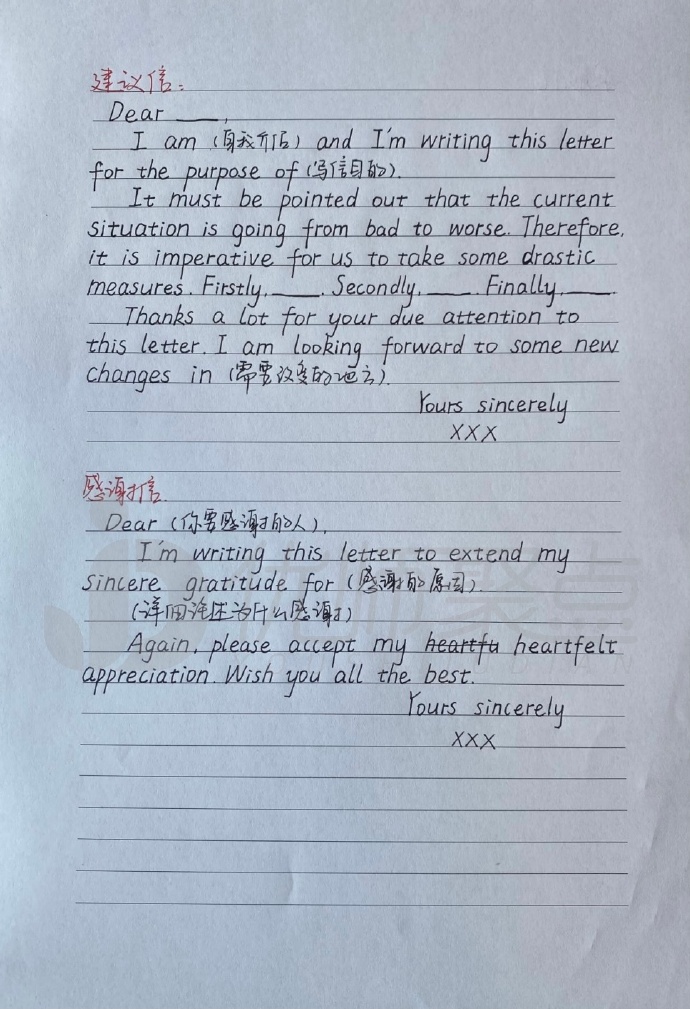 建议信:
Dear ___,
I am (自我介绍) and I'm writing this letter
for the purpose of (写信目的).
It must be pointed out that the current
situation is going from bad to worse. Therefore,
it is imperative for us to take some drastic
measures. Firstly, ___. Secondly, ___. Finally, ___.
Thanks a lot for your due attention to
this letter. I am looking forward to some new
changes in (需要改变的地方).
Yours sincerely
XXX
感谢信.
Dear (你要感谢的人),
I'm writing this letter to extend my
sincere gratitude for (感谢的原因).
(详细详述为什么感谢)
Again, please accept my heartfu heartfelt
appreciation. Wish you all the best.
Yours sincerely
XXX